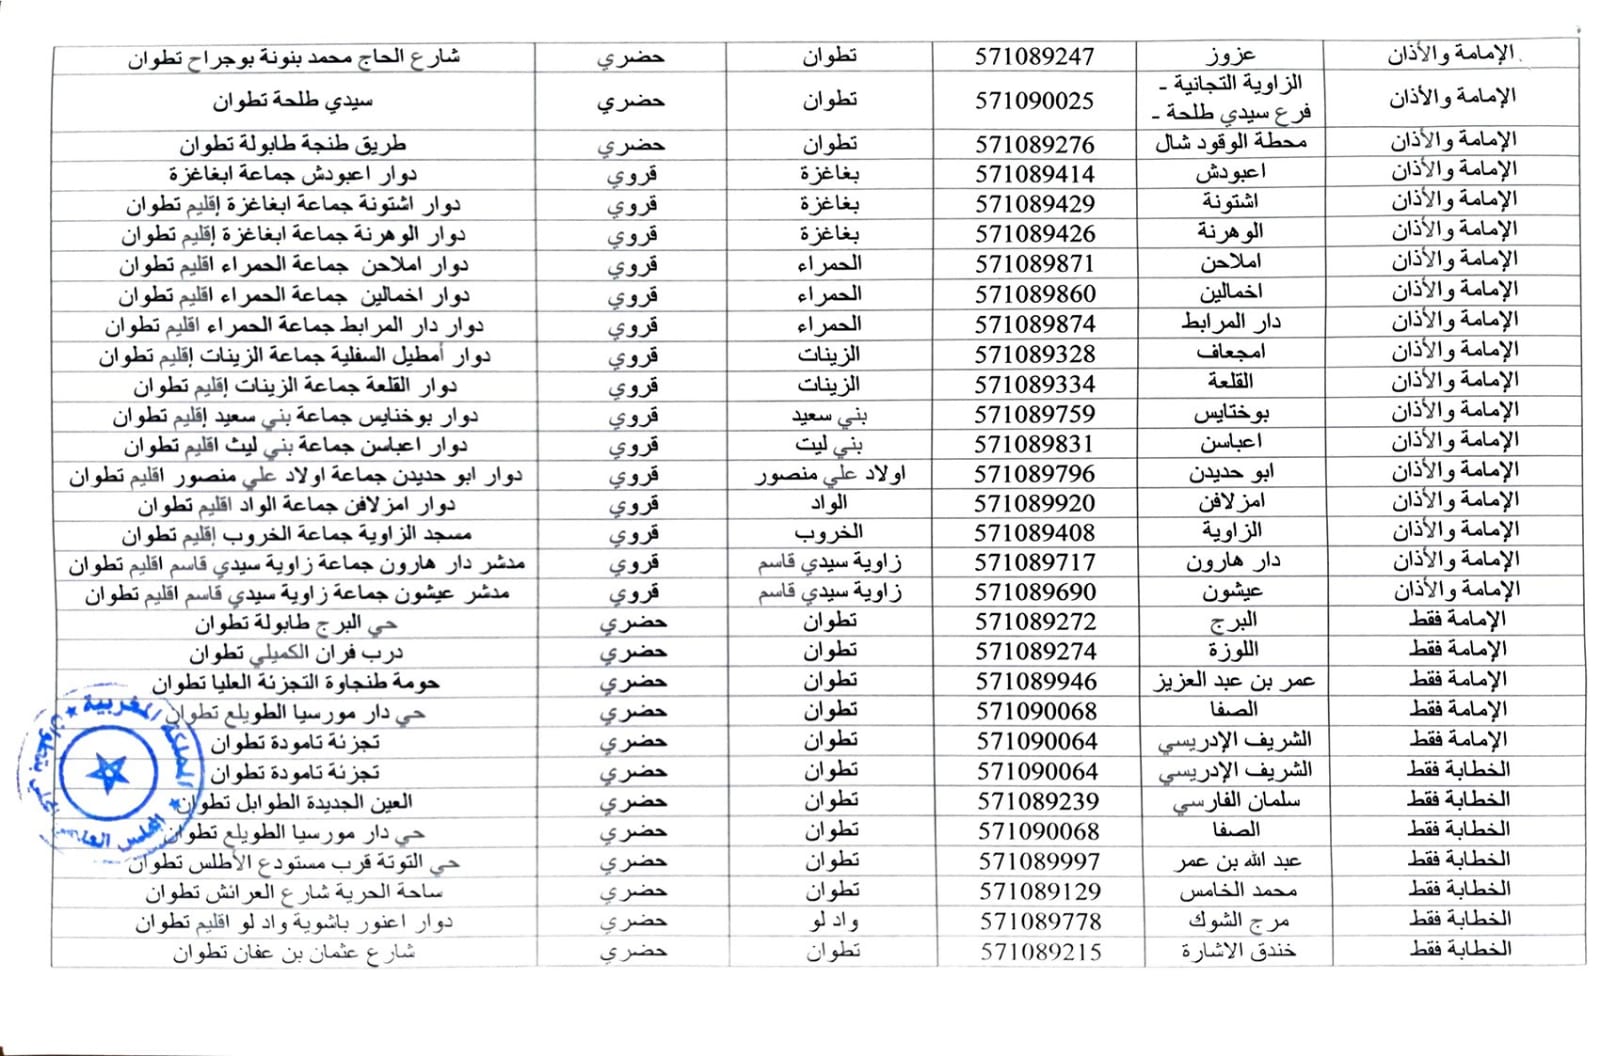 الإمامة والأذان عزوز 571089247 تطوان حضري شارع الحاج محمد بنونة بوجراح تطوان
الإمامة والأذان الزاوية التجانية - فرع سيدي طلحة - 571090025 تطوان حضري سيدي طلحة تطوان
الإمامة والأذان محطة الوقود شال 571089276 تطوان حضري طريق طنجة طابولة تطوان
الإمامة والأذان اعبودش 571089414 بغاغزة قروي دوار اعبودش جماعة ابغاغزة
الإمامة والأذان اشتونة 571089429 بغاغزة قروي دوار اشتونة جماعة ابغاغزة إقليم تطوان
الإمامة والأذان الوهرنة 571089426 بغاغزة قروي دوار الوهرنة جماعة ابغاغزة إقليم تطوان
الإمامة والأذان املاحن 571089871 الحمراء قروي دوار املاحن جماعة الحمراء اقليم تطوان
الإمامة والأذان اخمالين 571089860 الحمراء قروي دوار اخمالين جماعة الحمراء اقليم تطوان
الإمامة والأذان دار المرابط 571089874 الحمراء قروي دوار دار المرابط جماعة الحمراء اقليم تطوان
الإمامة والأذان امجعاف 571089328 الزينات قروي دوار أمطيل السفلية جماعة الزينات إقليم تطوان
الإمامة والأذان القلعة 571089334 الزينات قروي دوار القلعة جماعة الزينات إقليم تطوان
الإمامة والأذان بوختايس 571089759 بني سعيد قروي دوار بوخنايس جماعة بني سعيد إقليم تطوان
الإمامة والأذان اعباسن 571089831 بني ليت قروي دوار اعباسن جماعة بني ليث اقليم تطوان
الإمامة والأذان ابو حديدن 571089796 اولاد علي منصور قروي دوار ابو حديدن جماعة اولاد علي منصور اقليم تطوان
الإمامة والأذان امزلافن 571089920 الواد قروي دوار امزلافن جماعة الواد اقليم تطوان
الإمامة والأذان الزاوية 571089408 الخروب قروي مسجد الزاوية جماعة الخروب إقليم تطوان
الإمامة والأذان دار هارون 571089717 زاوية سيدي قاسم قروي مدشر دار هارون جماعة زاوية سيدي قاسم اقليم تطوان
الإمامة والأذان عيشون 571089690 زاوية سيدي قاسم قروي مدشر عيشون جماعة زاوية سيدي قاسم اقليم تطوان
الإمامة فقط البرج 571089272 تطوان حضري حي البرج طابولة تطوان
الإمامة فقط اللوزة 571089274 تطوان حضري درب فران الكميلي تطوان
الإمامة فقط عمر بن عبد العزيز 571089946 تطوان حضري حومة طنجاوة التجزئة العليا تطوان
الإمامة فقط الصفا 571090068 تطوان حضري حي دار مورسيا الطويلع تطوان
الإمامة فقط الشريف الإدريسي 571090064 تطوان حضري تجزئة تامودة تطوان
الخطابة فقط الشريف الإدريسي 571090064 تطوان حضري تجزئة تامودة تطوان
الخطابة فقط سلمان الفارسي 571089239 تطوان حضري العين الجديدة الطوابل تطوان
الخطابة فقط الصفا 571090068 تطوان حضري حي دار مورسيا الطويلع تطوان
الخطابة فقط عبد الله بن عمر 571089997 تطوان حضري حي التوتة قرب مستودع الأطلس تطوان
الخطابة فقط محمد الخامس 571089129 تطوان حضري ساحة الحرية شارع العرائش تطوان
الخطابة فقط مرج الشوك 571089778 واد لو حضري دوار اعنور باشوية واد لو اقليم تطوان
الخطابة فقط خندق الاشارة 571089215 تطوان حضري شارع عثمان بن عفان تطوان
المملكة المغربية
المجلس العلمي المحلي بتطوان